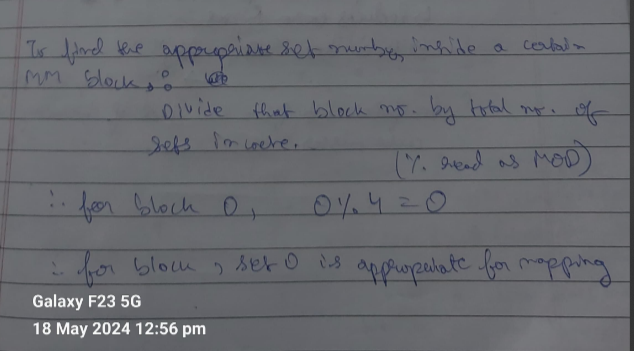 To find the appropriate set number, inside a certain
MM block, :
Divide that block no. by total no. of
sets in
(% read as MOD)
∴ for block 0, 0 % 4 = 0
∴ for block , set 0 is appropriate for mapping
Galaxy F23 5G
18 May 2024 12:56 pm